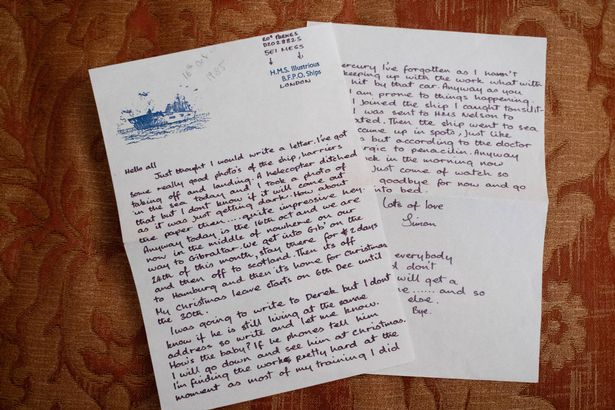 ROS PARKES
D202882S
5E1 MESS
H.M.S. Illustrious
B.F.P.O. Ships
LONDON
16th Oct
1985
Hello all
Just thought I would write a letter. I've got
some really good photo's of the ship, harriers
taking off and landing. A helecopter ditched
in the sea today and I took a photo of
that but I dont know if it will come out
as it was just getting dark. How about
the paper then.... quite impressive hey.
Anyway today is the 16th oct and we are
now in the middle of nowhere on our
way to Gibraltar. We get into Gib' on the
24th of this month, stay there for 2 days
and then off to scotland. Then it's off
to Hamburg and then it's home for Christmas
My Christmas leave starts on 6th Dec until
the 30th.
I was going to write to Derek but I dont
know if he is still living at the same
address so write and let me know.
How's the baby? If he phones tell him
I will go down and see him at Christmas.
I'm finding the work pretty hard at the
moment as most of my training I did
ercury I've forgotten as I haven't
keeping up with the work what with
hit by that car. Anyway as you
I am prone to things happening
I joined the ship I caught tonsilit-
I was sent to HMS Nelson to
ated. Then the ship went to sea
came up in spots, just like
s but according to the doctor
rgic to penacilin. Anyway
ck in the morning now
just come of watch so
goodbye for now and go
into bed
lots of love
Simon
everybody
d don't
will get a
me ...... and so
else..
Bye.